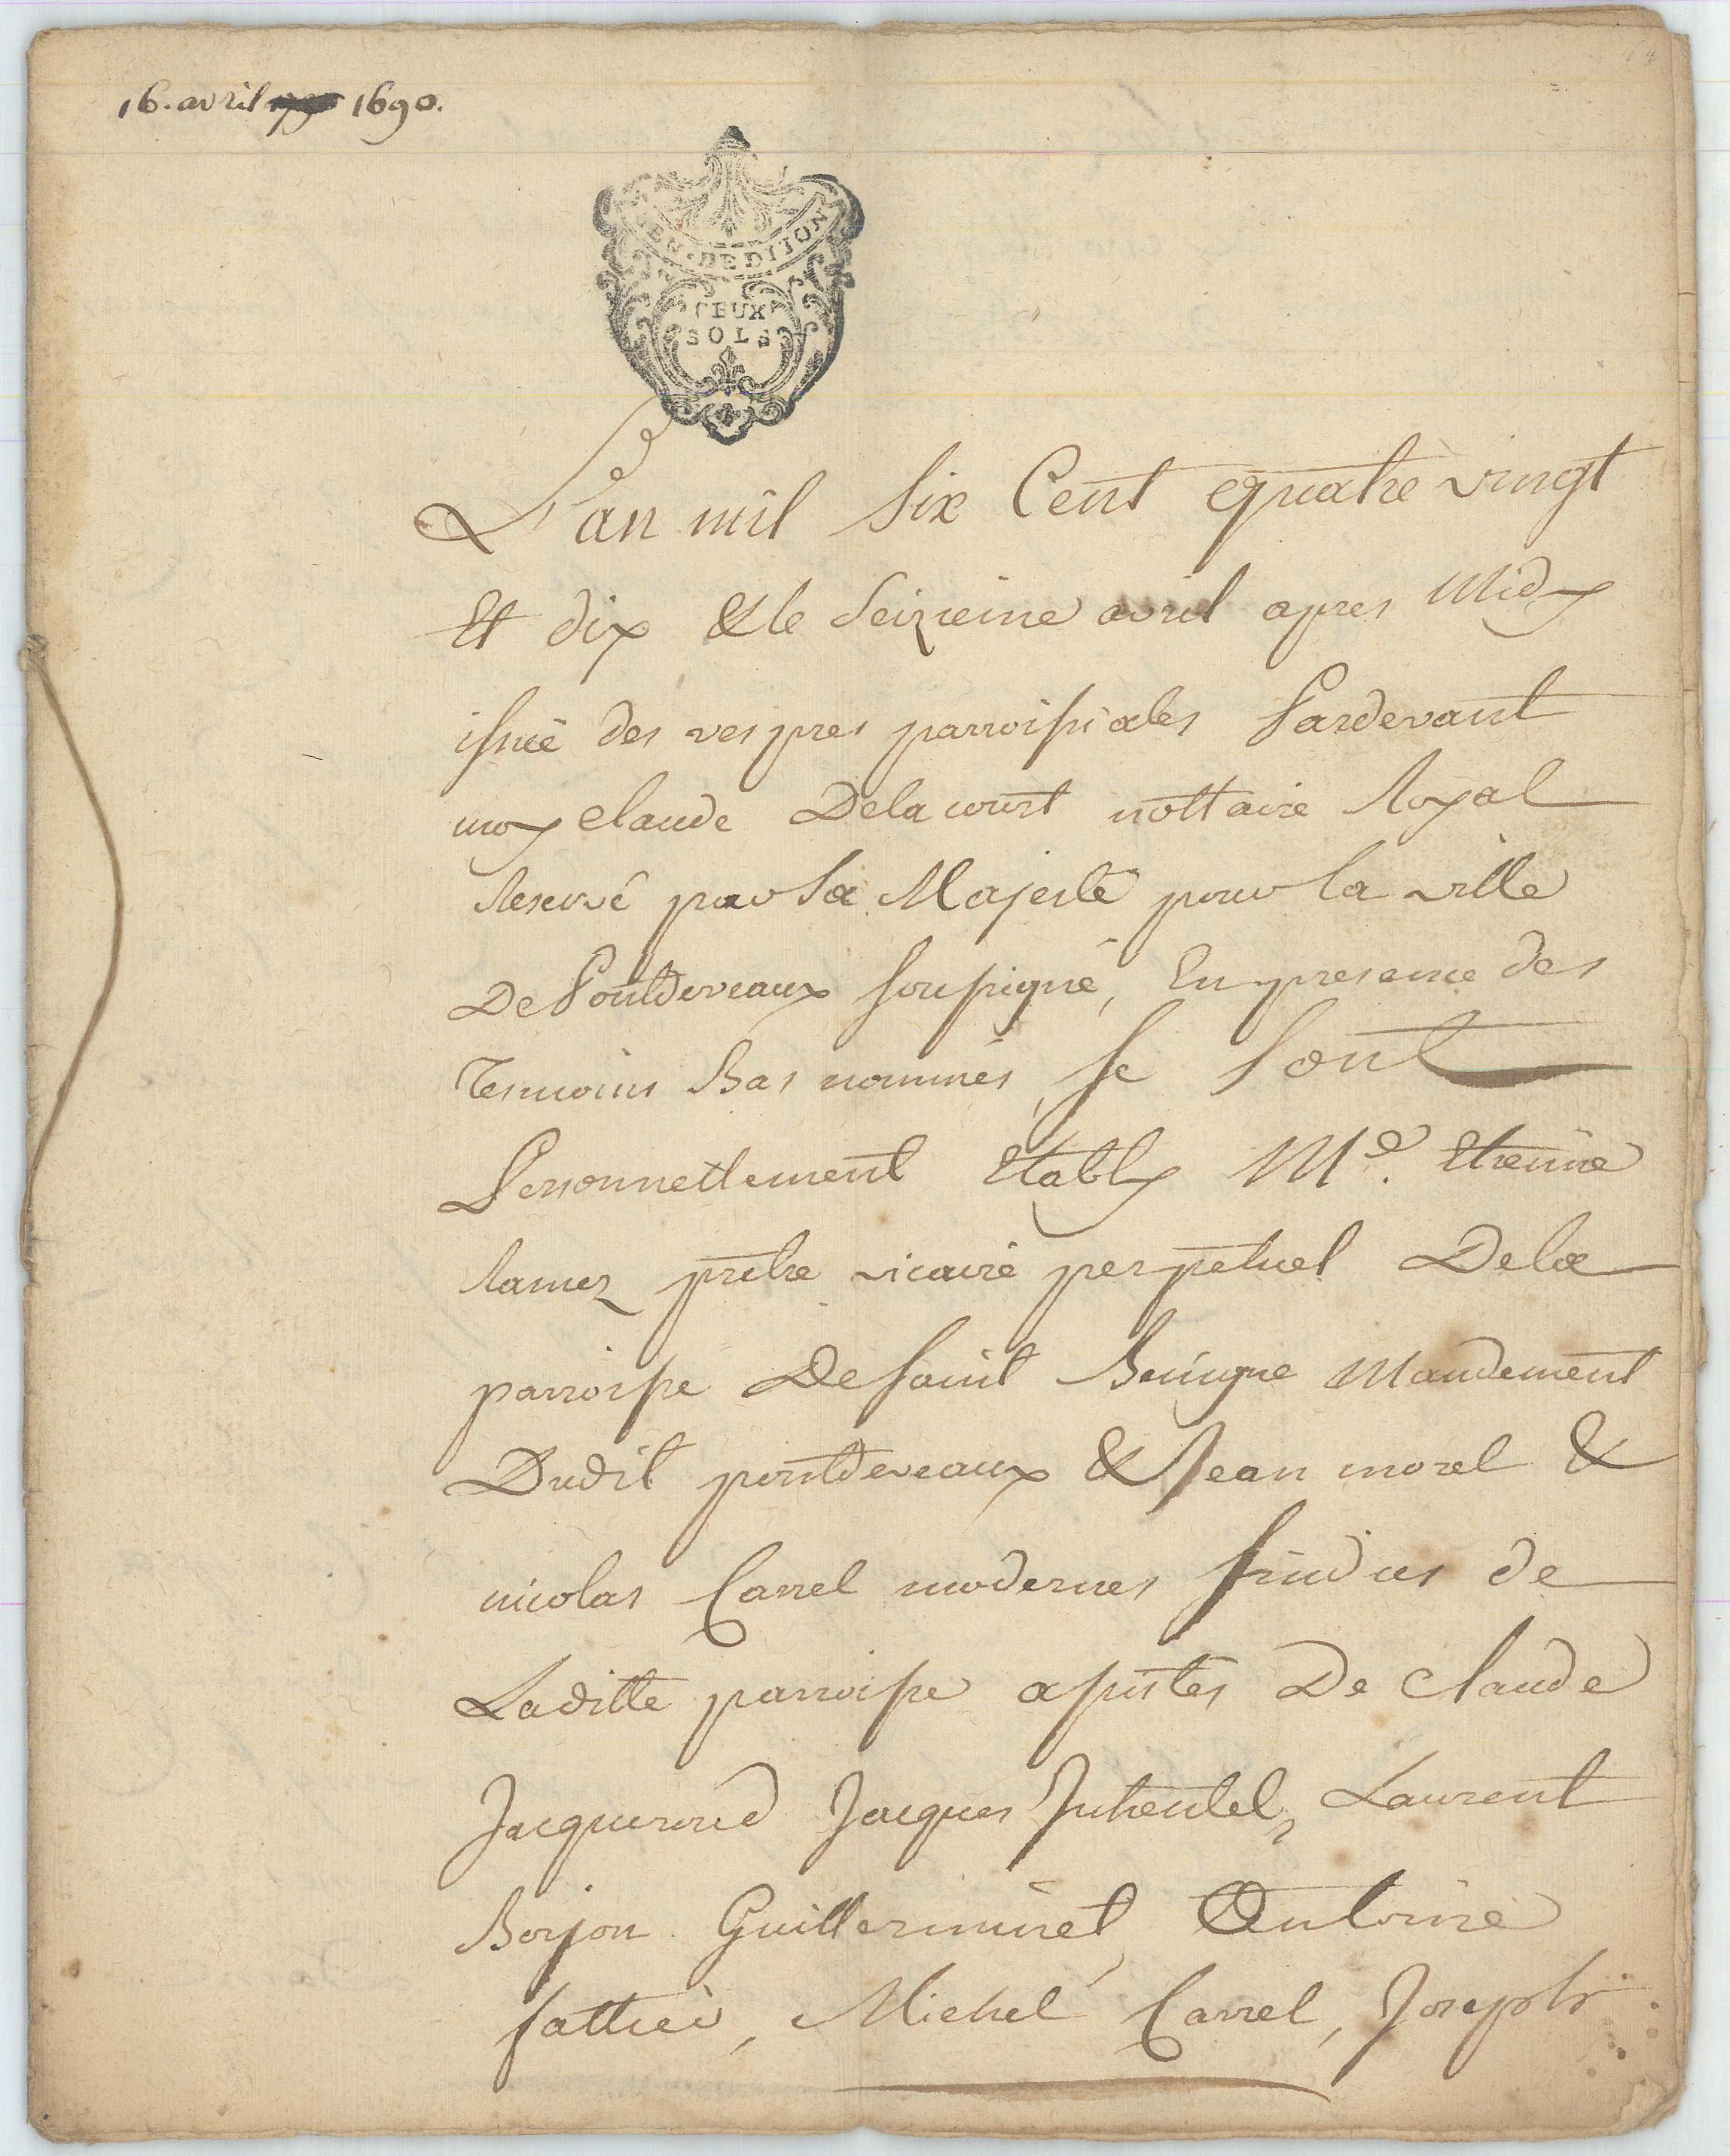 16. avril 1690.
GEN. DE DIJON
DEUX
SOLS
L'an mil six Cent quatre vingt
Et dix & le seizieme avril apres Midy
issuë des vespres parroissiales Pardevant
moy Claude Delacourt nottaire Royal
Reservé par Sa Majesté pour la ville
De Pontdeveaux soussigné, En presence des
Tesmoins Bas nommés, se sont
Personnellement Etably Me. Etienne
Ramez prêtre vicaire perpetuel Dela
parroisse De saint Benigne Mandement
Dudit pontdeveaux & Jean morel &
nicolas Carrel modernes sindics de
Laditte parroisse assistés De Claude
Jacquerond Jacques Laurent
Borjon Guillerminet, Antoine
, Michel Carrel, Joseph